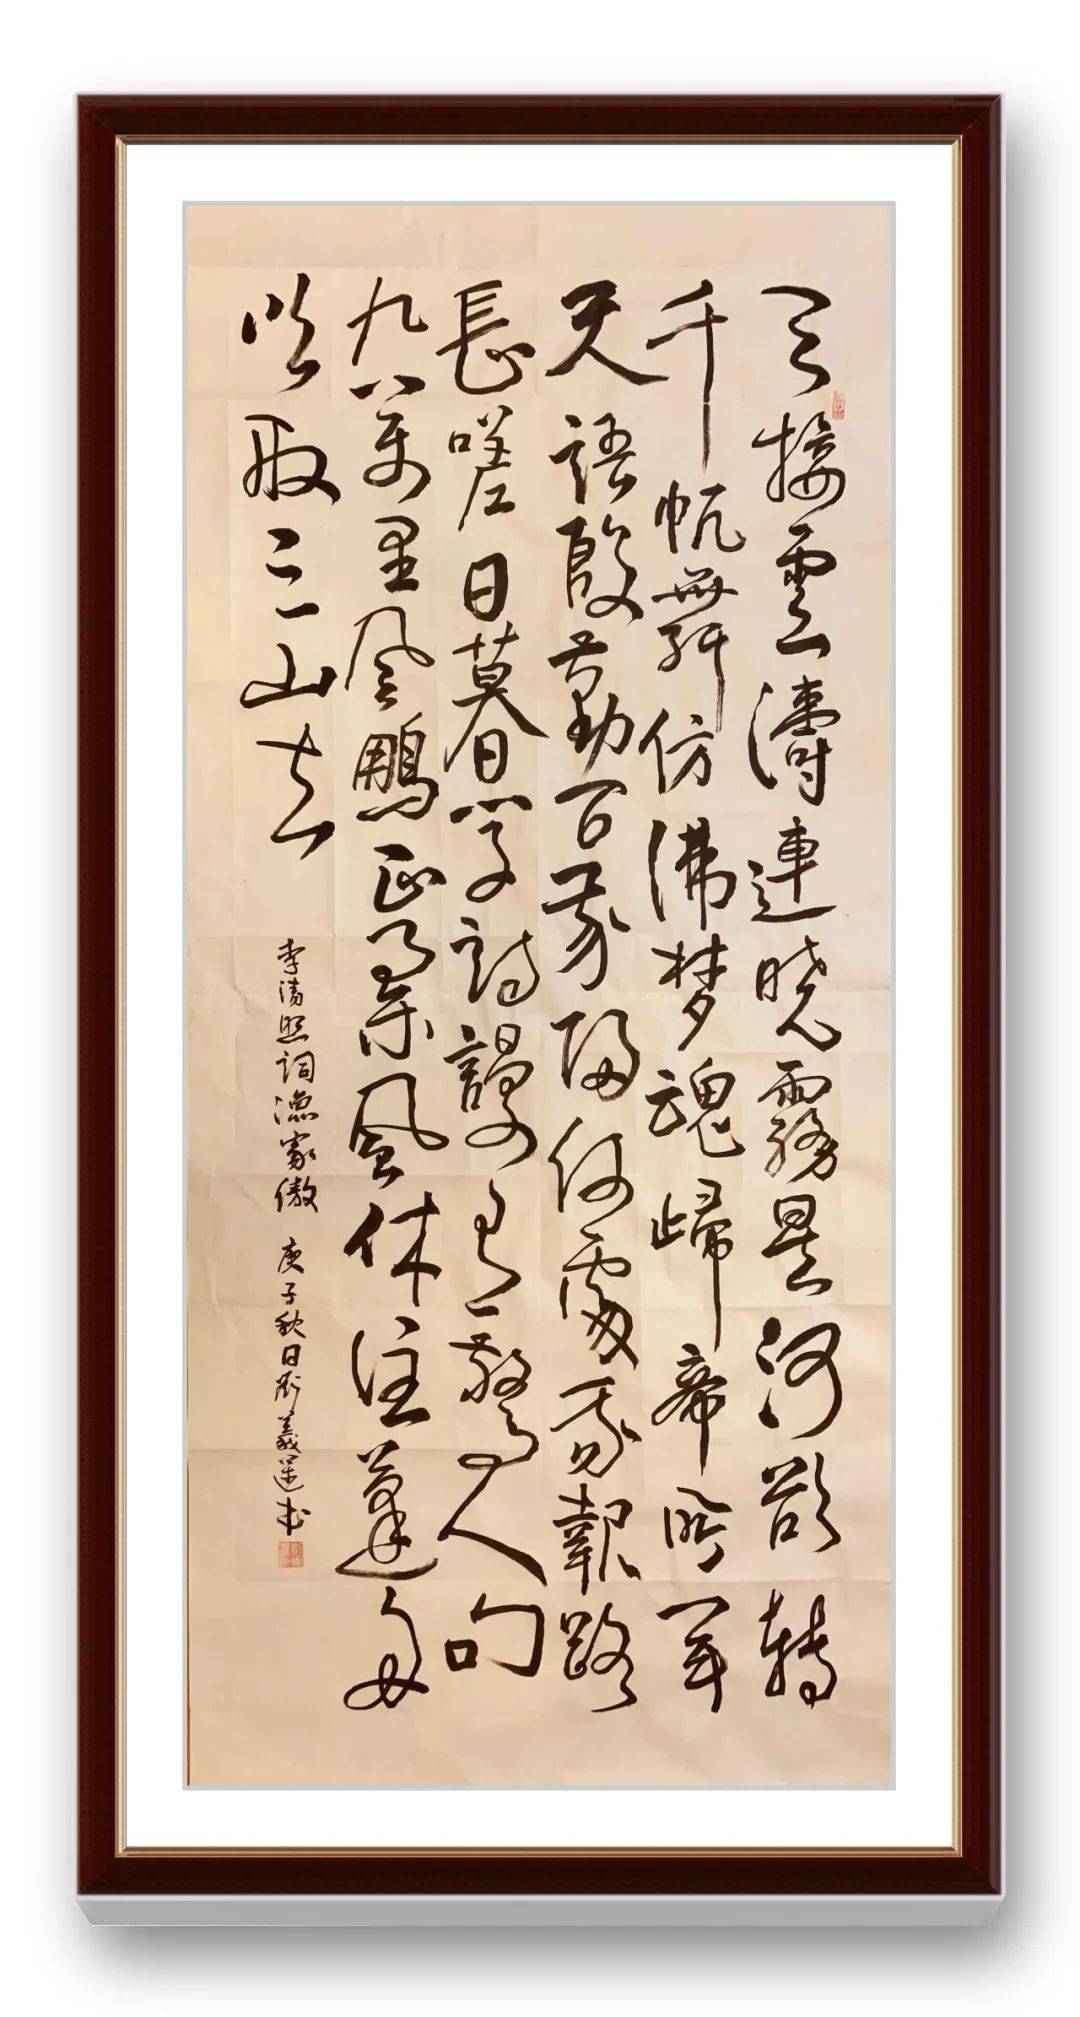 天接雲濤連晓霧星河欲轉
千帆舞仿彿梦魂歸帝所聞
天語殷勤問我歸何處我報路
長嗟日暮學詩謾有驚人句
九萬里風鵬正舉風休住蓬舟
吹取三山去
李清照詞漁家傲 庚子秋日劉義書